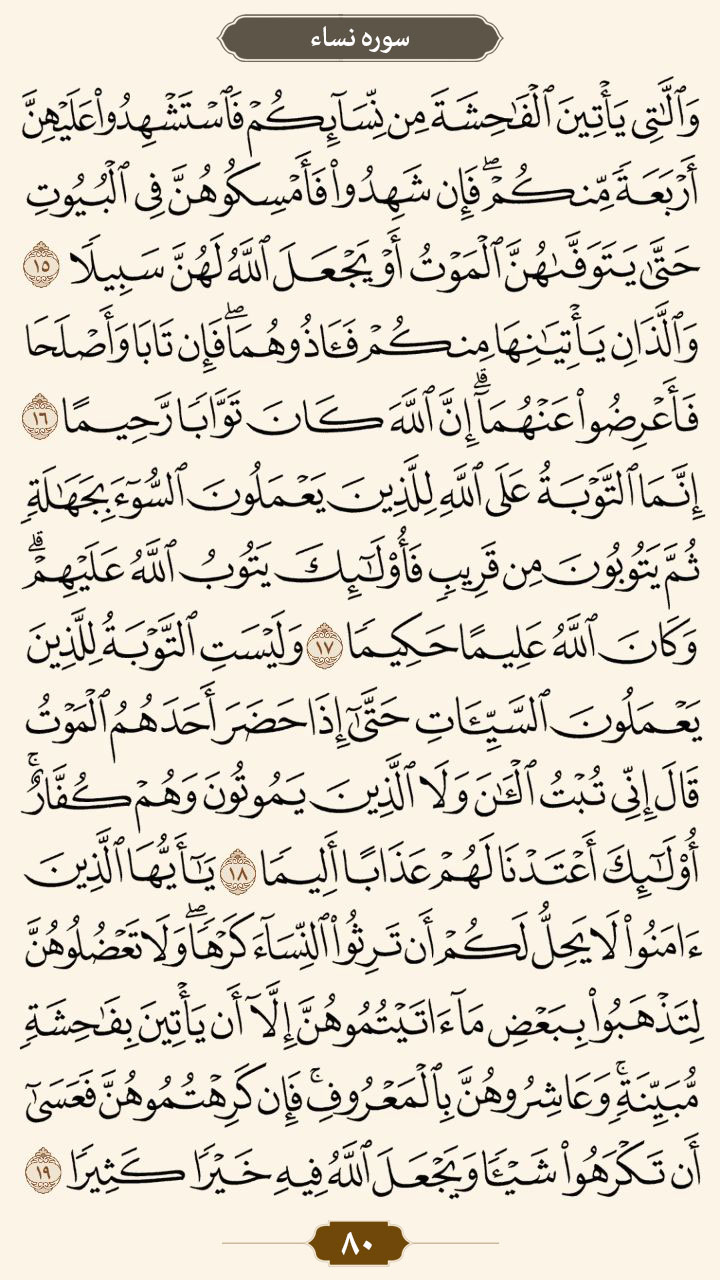 سوره نساء
وَٱلَّٰتِى يَأْتِينَ ٱلْفَٰحِشَةَ مِن نِّسَآئِكُمْ فَٱسْتَشْهِدُوا۟ عَلَيْهِنَّ
أَرْبَعَةً مِّنكُمْ ۖ فَإِن شَهِدُوا۟ فَأَمْسِكُوهُنَّ فِى ٱلْبُيُوتِ
حَتَّىٰ يَتَوَفَّىٰهُنَّ ٱلْمَوْتُ أَوْ يَجْعَلَ ٱللَّهُ لَهُنَّ سَبِيلًا ١٥
وَٱلَّذَانِ يَأْتِيَٰنِهَا مِنكُمْ فَـَٔاذُوهُمَا ۖ فَإِن تَابَا وَأَصْلَحَا
فَأَعْرِضُوا۟ عَنْهُمَآ ۗ إِنَّ ٱللَّهَ كَانَ تَوَّابًا رَّحِيمًا ١٦
إِنَّمَا ٱلتَّوْبَةُ عَلَى ٱللَّهِ لِلَّذِينَ يَعْمَلُونَ ٱلسُّوٓءَ بِجَهَٰلَةٍ
ثُمَّ يَتُوبُونَ مِن قَرِيبٍ فَأُو۟لَٰٓئِكَ يَتُوبُ ٱللَّهُ عَلَيْهِمْ ۗ
وَكَانَ ٱللَّهُ عَلِيمًا حَكِيمًا ١٧ وَلَيْسَتِ ٱلتَّوْبَةُ لِلَّذِينَ
يَعْمَلُونَ ٱلسَّيِّـَٔاتِ حَتَّىٰٓ إِذَا حَضَرَ أَحَدَهُمُ ٱلْمَوْتُ
قَالَ إِنِّى تُبْتُ ٱلْـَٰٔنَ وَلَا ٱلَّذِينَ يَمُوتُونَ وَهُمْ كُفَّارٌ ۚ
أُو۟لَٰٓئِكَ أَعْتَدْنَا لَهُمْ عَذَابًا أَلِيمًا ١٨ يَٰٓأَيُّهَا ٱلَّذِينَ
ءَامَنُوا۟ لَا يَحِلُّ لَكُمْ أَن تَرِثُوا۟ ٱلنِّسَآءَ كَرْهًا ۖ وَلَا تَعْضُلُوهُنَّ
لِتَذْهَبُوا۟ بِبَعْضِ مَآ ءَاتَيْتُمُوهُنَّ إِلَّآ أَن يَأْتِينَ بِفَٰحِشَةٍ
مُّبَيِّنَةٍ ۚ وَعَاشِرُوهُنَّ بِٱلْمَعْرُوفِ ۚ فَإِن كَرِهْتُمُوهُنَّ فَعَسَىٰٓ
أَن تَكْرَهُوا۟ شَيْـًٔا وَيَجْعَلَ ٱللَّهُ فِيهِ خَيْرًا كَثِيرًا ١٩
٨٠